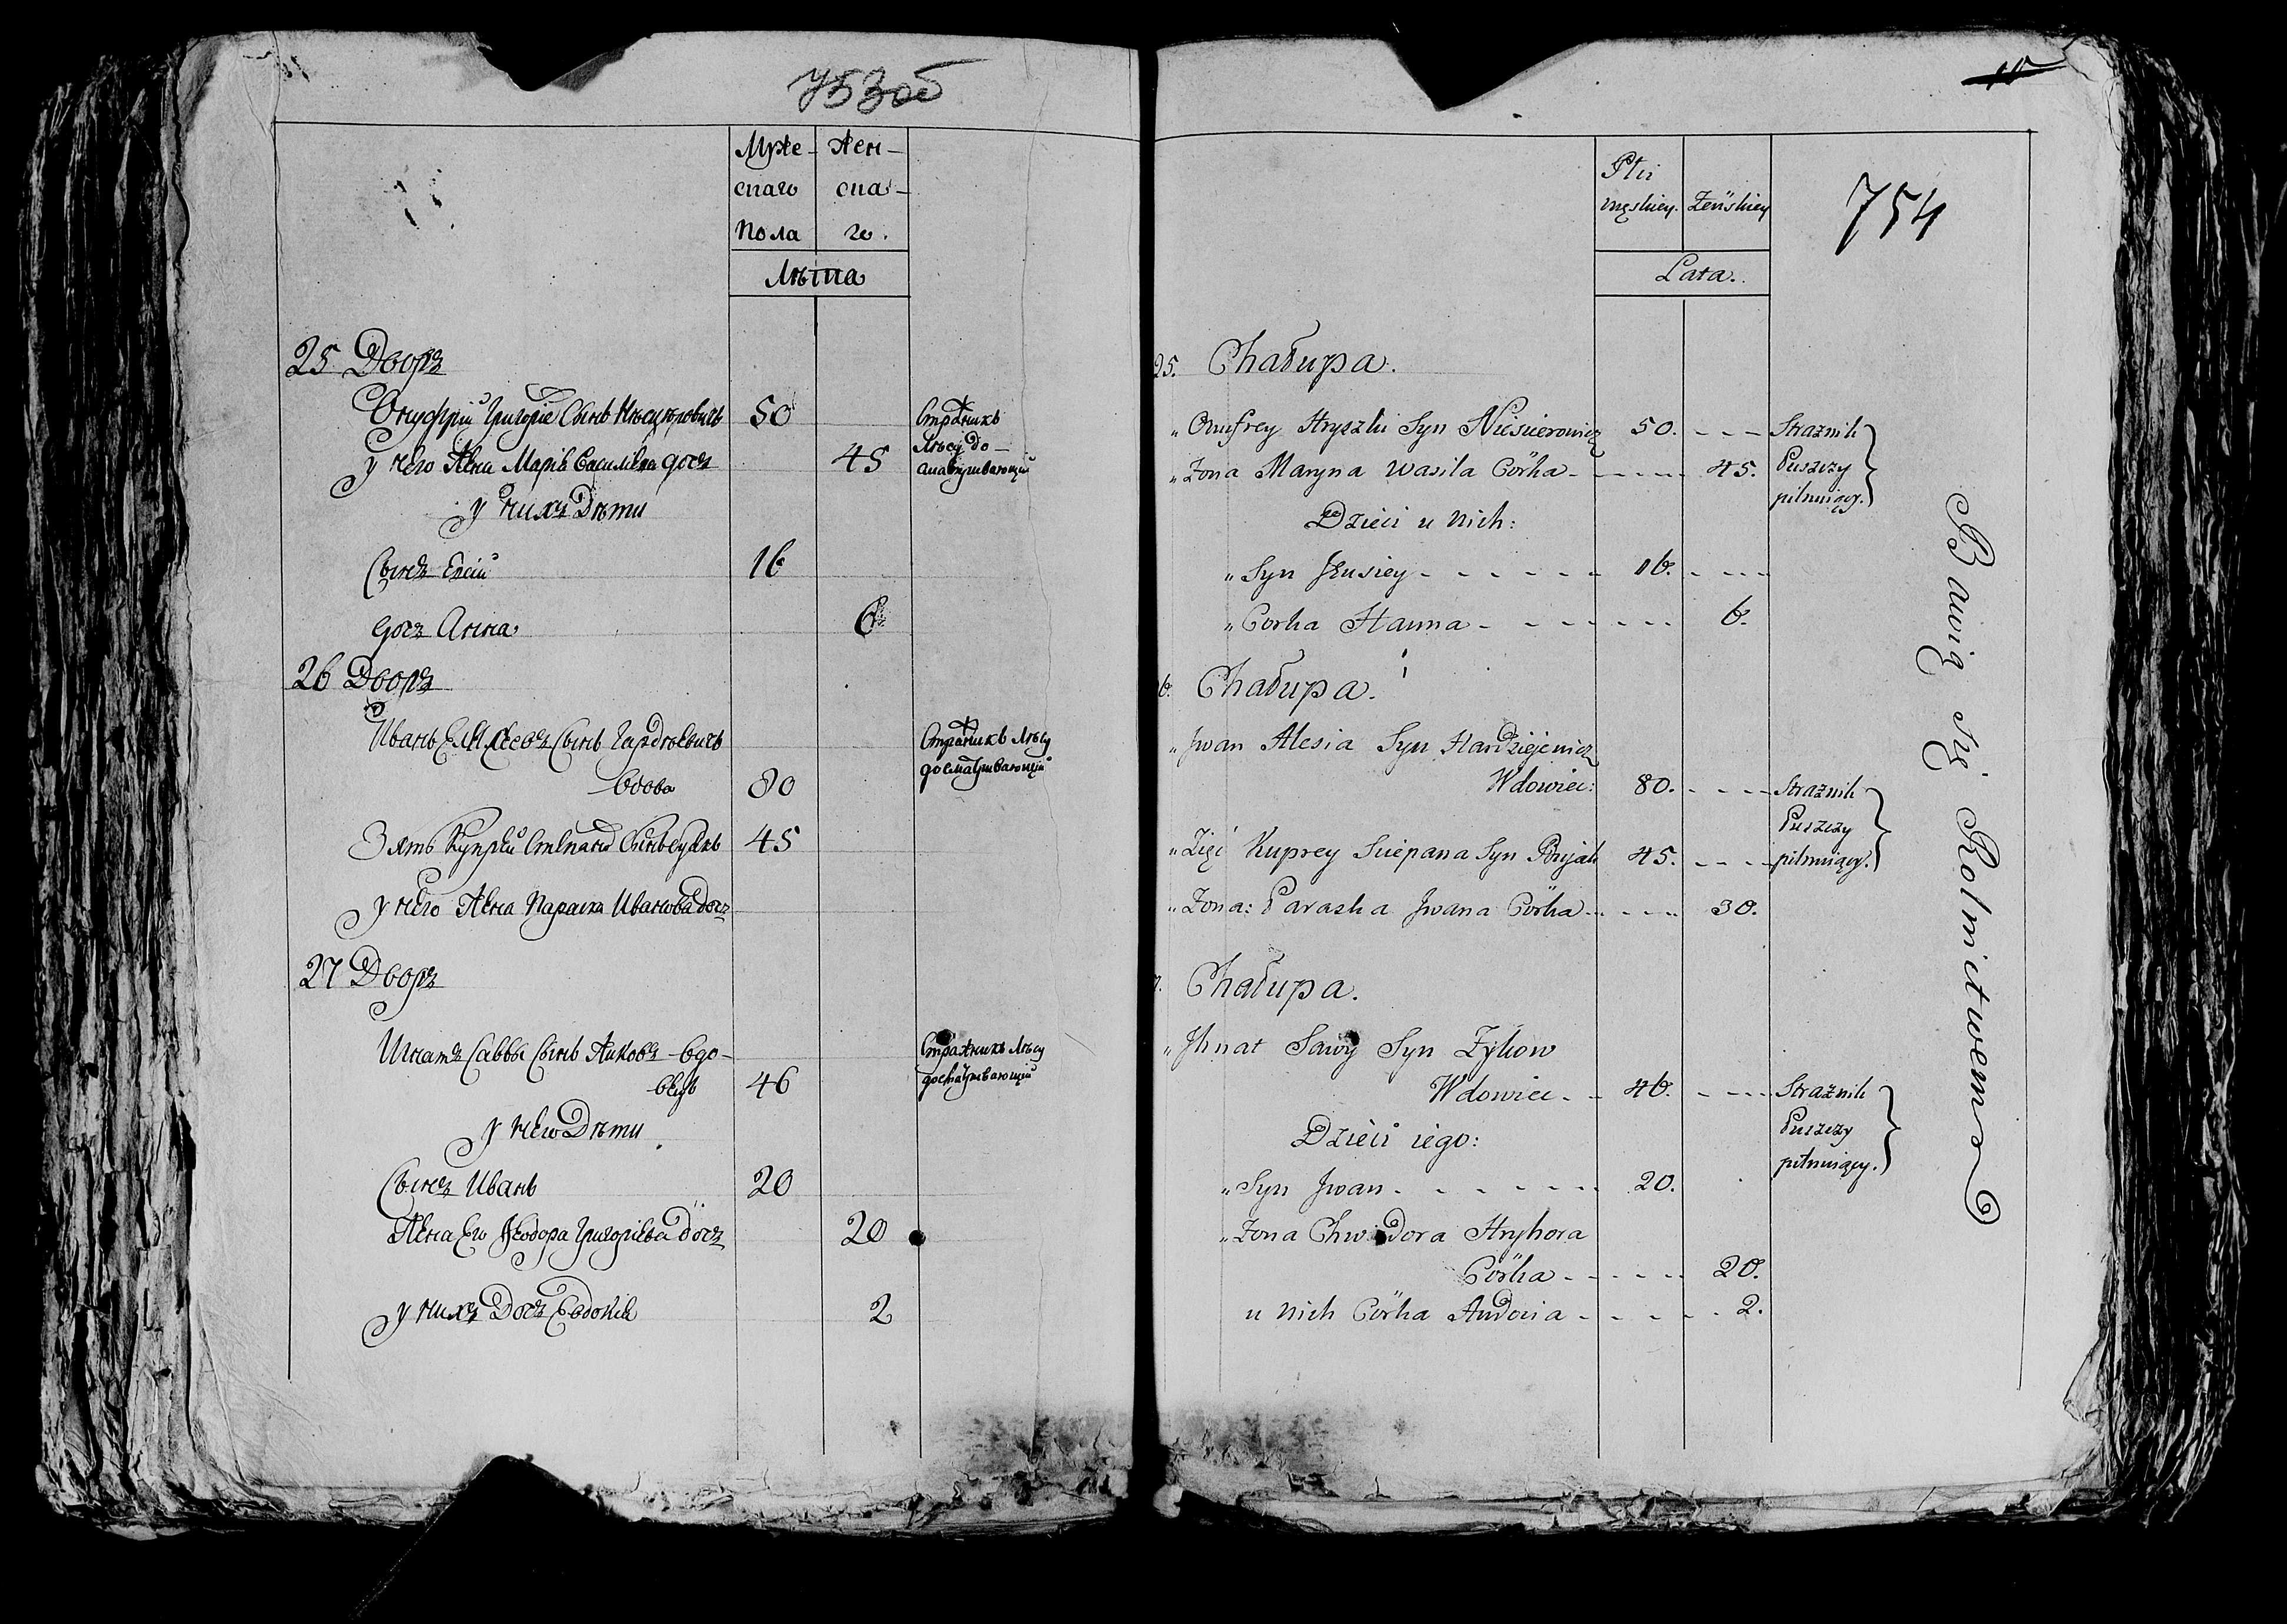 753об
Муже- Жен-
скаго ска-
Пола го.
Лѣта
25 Дворъ
Онуфрій Григоріе Сынъ Нѣсцѣровичъ 50 Стражникъ
Лѣсу до-
сматривающій
у него Жена Марія Василіева дочь 45
у нихъ Дѣти
Сынъ Евсій 16
дочь Анна 6
26 Дворъ
Иванъ Елисеевъ Сынъ Гардѣевичъ Стражникъ Лѣсу
досматривающій
вдовъ 80
Зять Купрей Степана Сынъ 45
у него Жена Параска Иванова дочь
27 Дворъ
Игнатъ Саввы Сынъ Жиковъ вдо- Стражникъ Лѣсу
досматривающій
вецъ 46
у него Дѣти
Сынъ Иванъ 20
Жена Его Ѳеодора Григоріева дочь 20
у нихъ Дочь Евдокія 2
754
Płci
męskiey. Żeńskiey
Lata.
25. Chałupa.
„ Onufrey Hryszki Syn Nieścierowicz 50. - - - Strażnik
Puszczy
pilnuiący.
„ Żona Maryna Wasila Córka - - - - - 45.
Dzieci u Nich:
„ Syn Jeusiey - - - - - - 16. - - - -
„ Corka Hanna - - - - - - - 6.
6. Chałupa.
„ Jwan Alesia Syn Hardziejewicz
Wdowiec: 80. - - - - Strażnik
Puszczy
pilnuiący.
„ Zięć Kuprey Sciepana Syn Bujak 45. - - -
„ Żona: Paraska Jwana Córka - - - - - 30.
7. Chałupa.
„ Jhnat Sawy Syn Zykow
Wdowiec - - 46. - - - - Strażnik
Puszczy
pilnuiący.
Dzieci iego:
„ Syn Jwan - - - - - - - 20.
„ Żona Chwiedora Hryhora
Córka - - - - - 20.
u Nich Córka Audocia - - - - - 2.
Bawią się Rolnictwem